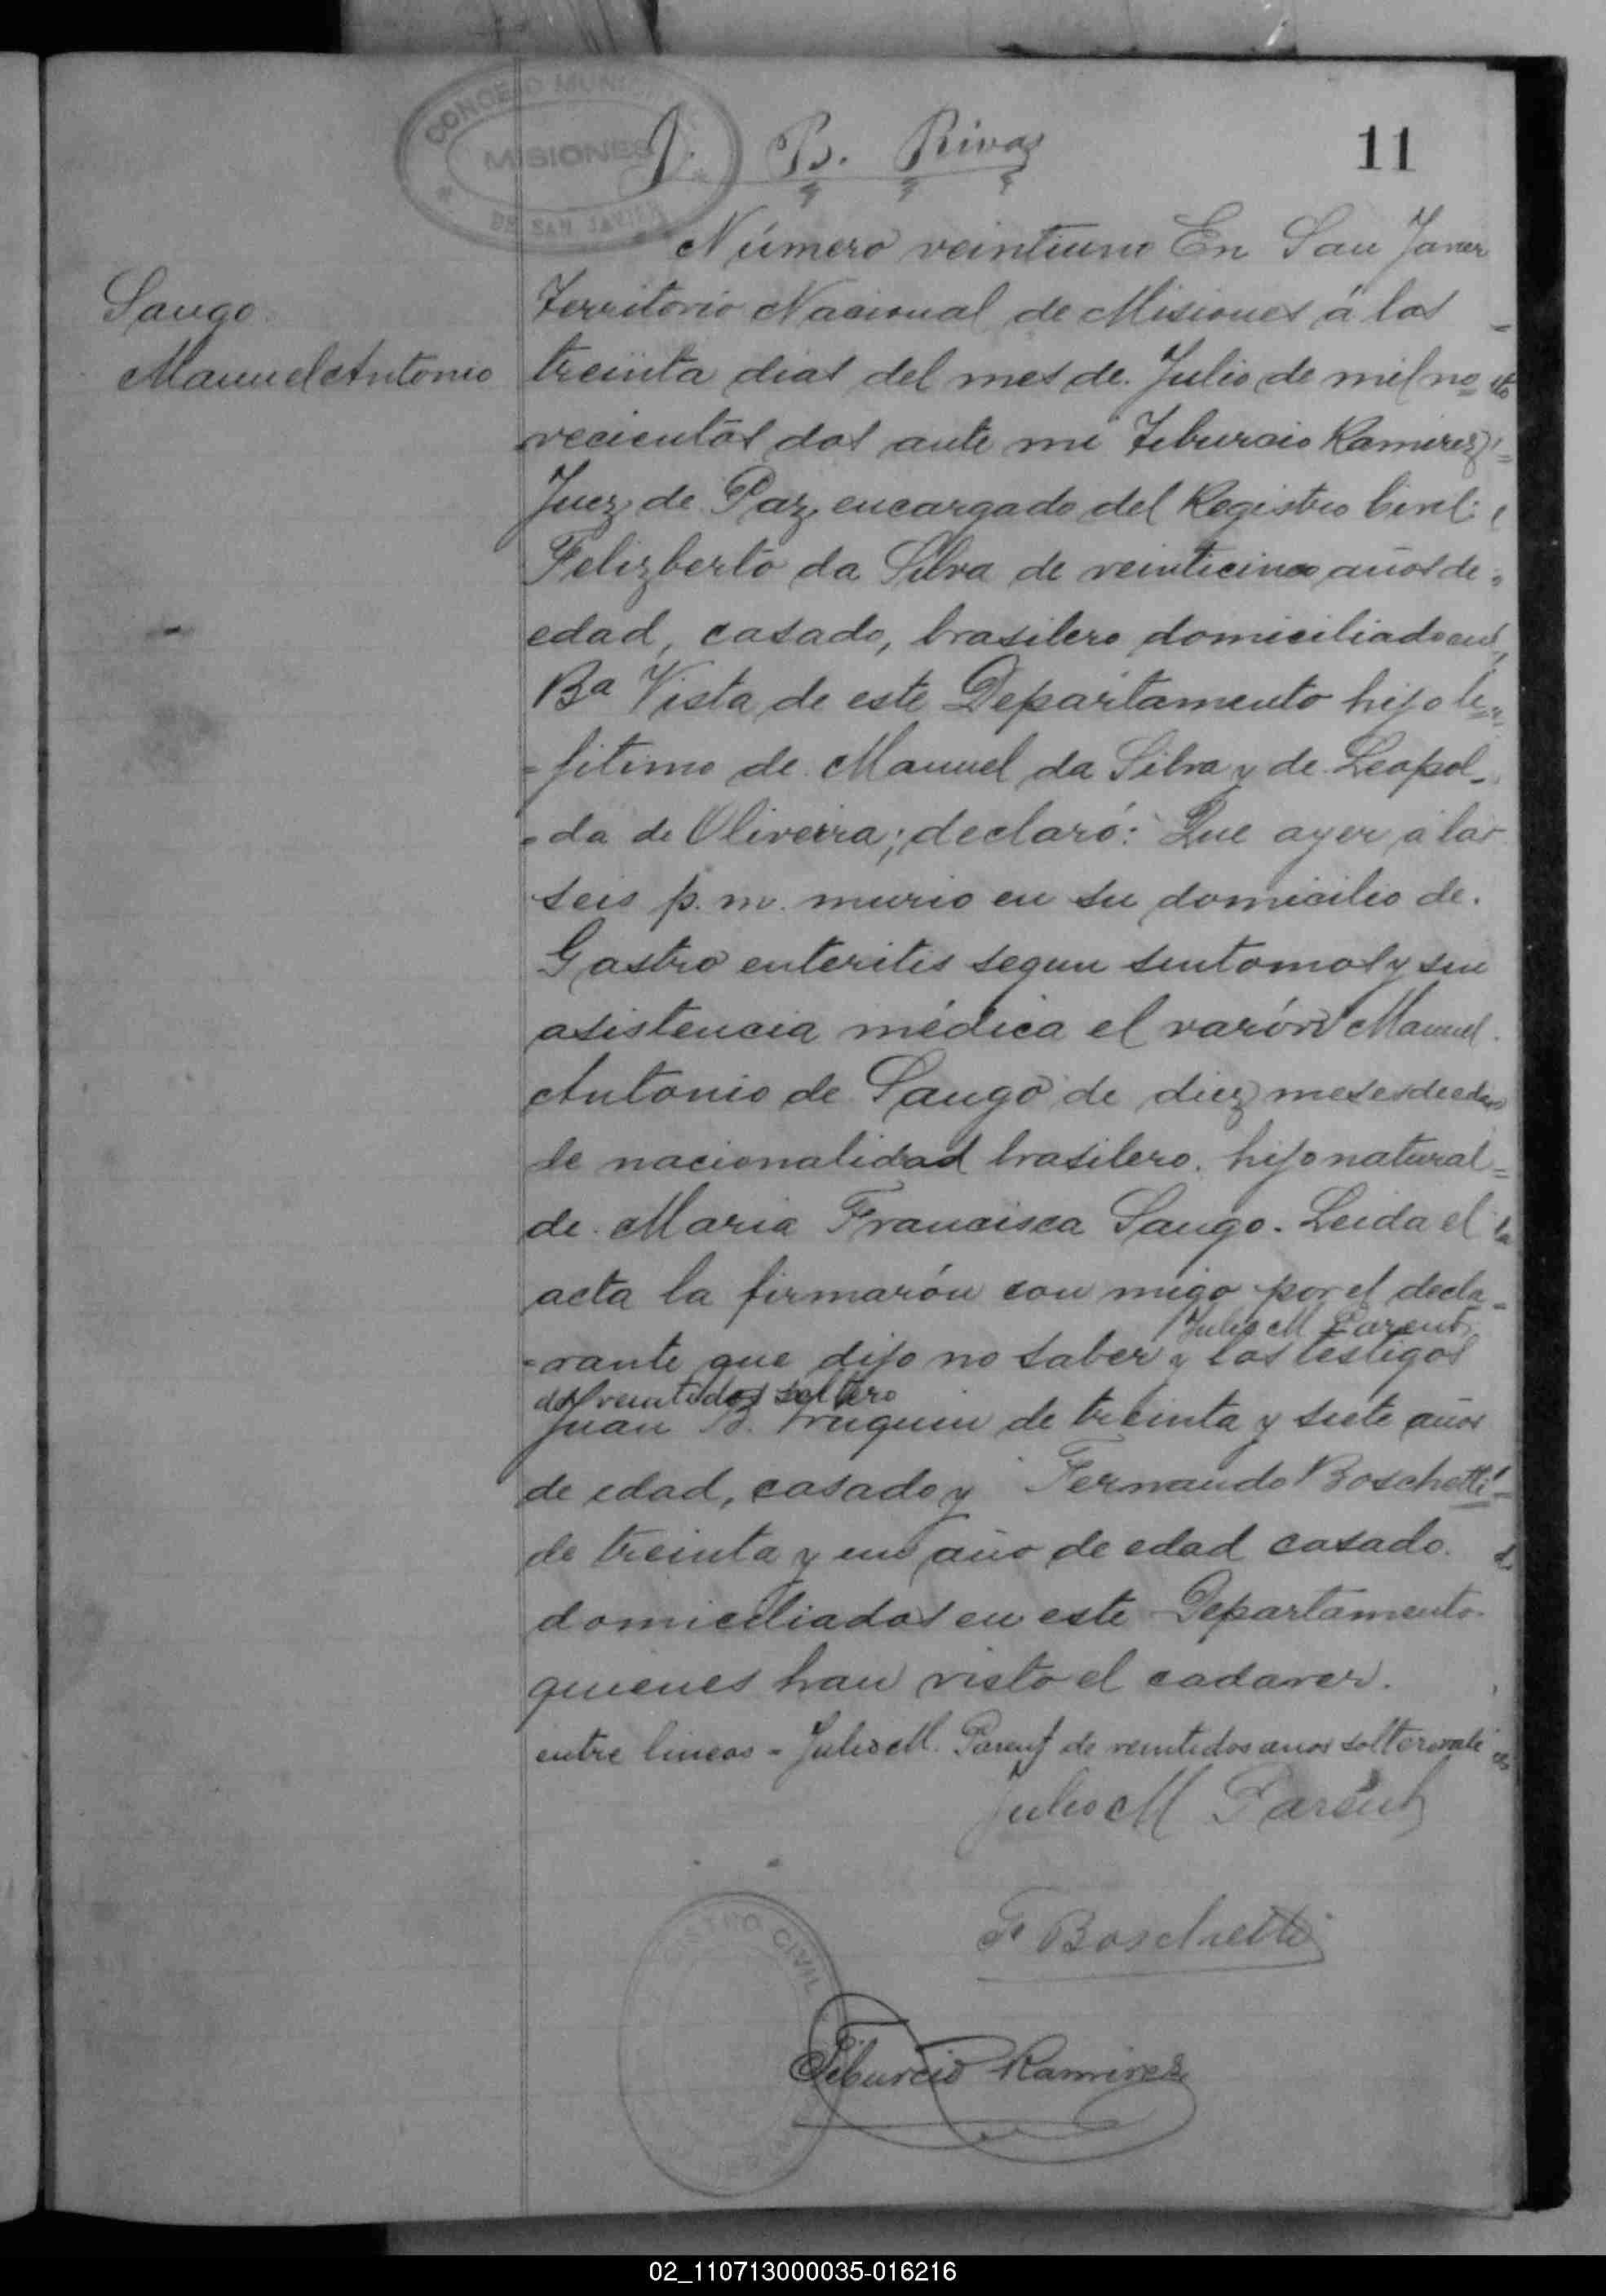 CONCEJO MUNICI
MISIONES
DE SAN JAVIER
J. B. Rivas
11
Número veintiuno En San Javier
Sango
Manuel Antonio
Territorio Nacional de Misiones á los
treinta dias del mes de Julio de mil no
vecientos dos ante mi Tiburcio Ramirez
Juez de Paz encargado del Registro Civil
Felizberto da Silva de veinticinco años de
edad, casado, brasilero domiciliado en
Ba Vista de este Departamento hijo le
=jitimo de Manuel da Silva y de Leopol-
=da de Oliveira; declaró: Que ayer á las
seis p.m. murio en su domicilio de
Gastro enteritis segun sintomas y sin
asistencia médica el varón Manuel
Antonio de Sango de diez meses de edad
de nacionalidad brasilero, hijo natural
de Maria Francisca Sango. Leida el
acta la firmarón con migo por el decla-
Julio M Parent
=rante que dijo no saber y los testigos
de veintidos soltero
Juan B. de treinta y siete años
de edad, casado y Fernando Boschetti
de treinta y un año de edad casado.
domiciliados en este Departamento
quienes han visto el cadaver.
entre lineas = Julio M. Parent de veintidos anos soltero vale
Julio M Parent
F. Boschetti
CIVIL
Tiburcio Ramirez
02_110713000035-016216